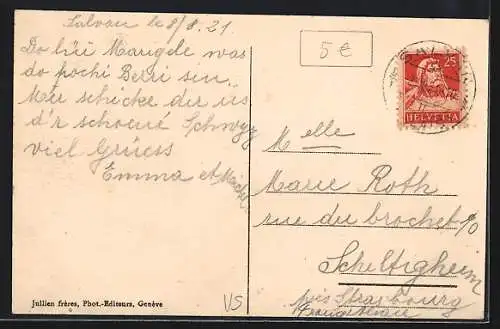 Salvan le 8/8.21
Do hüi Mangde was
do pochi Berri sin.
Mir schicke dir üs
d'r schoené Schwyz
viel Grüess
Emma et
5 €
25
HELVETIA
Melle
Marie Roth
rue du brochet %
Schiltigheim
près Strasbourg
Jullien frères, Phot.-Editeurs, Genève
VS